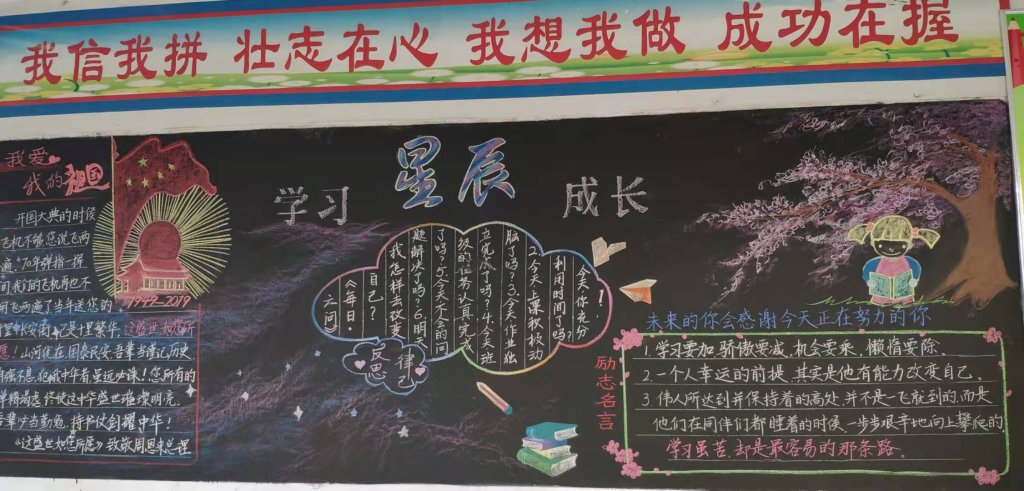 我信我拼 壮志在心 我想我做 成功在握
我爱
我的祖国
开国大典的时候
飞机不够您说飞两
遍 70年 指一挥
间 我们的飞机再也不
用飞两遍了 当年送您的
里长安街 已是十里繁华,这盛世如您所
愿!山河犹在 国泰民安 吾辈当谨记历史
自强不息,犯我中华者虽远必诛!您所有的
终使这中华盛世璀璨明亮.
吾辈少当勤勉,持书仗剑耀中华!
《这盛世如您所愿》致敬周恩来总理
1949-2019
学习 星辰 成长
今天,你充分
利用时间了吗?
2.今天上课积极动
脑了吗?3.今天作业独
立完成了吗?4.今天班
级的任务认真完成
了吗?5.今天不会的问
题解决了吗?6.明天
我怎样去改变
自己?
《每日·
六问》
反思
律己
励志名言
未来的你会感谢今天正在努力的你
1.学习要加,骄傲要减,机会要乘,懒惰要除.
2.一个人幸运的前提,其实是他有能力改变自己.
3.伟人所达到并保持着的高处,并不是一飞就到的,而是
他们在同伴们都睡着的时候,一步步艰辛地向上攀爬的
学习虽苦,却是最容易的那条路.